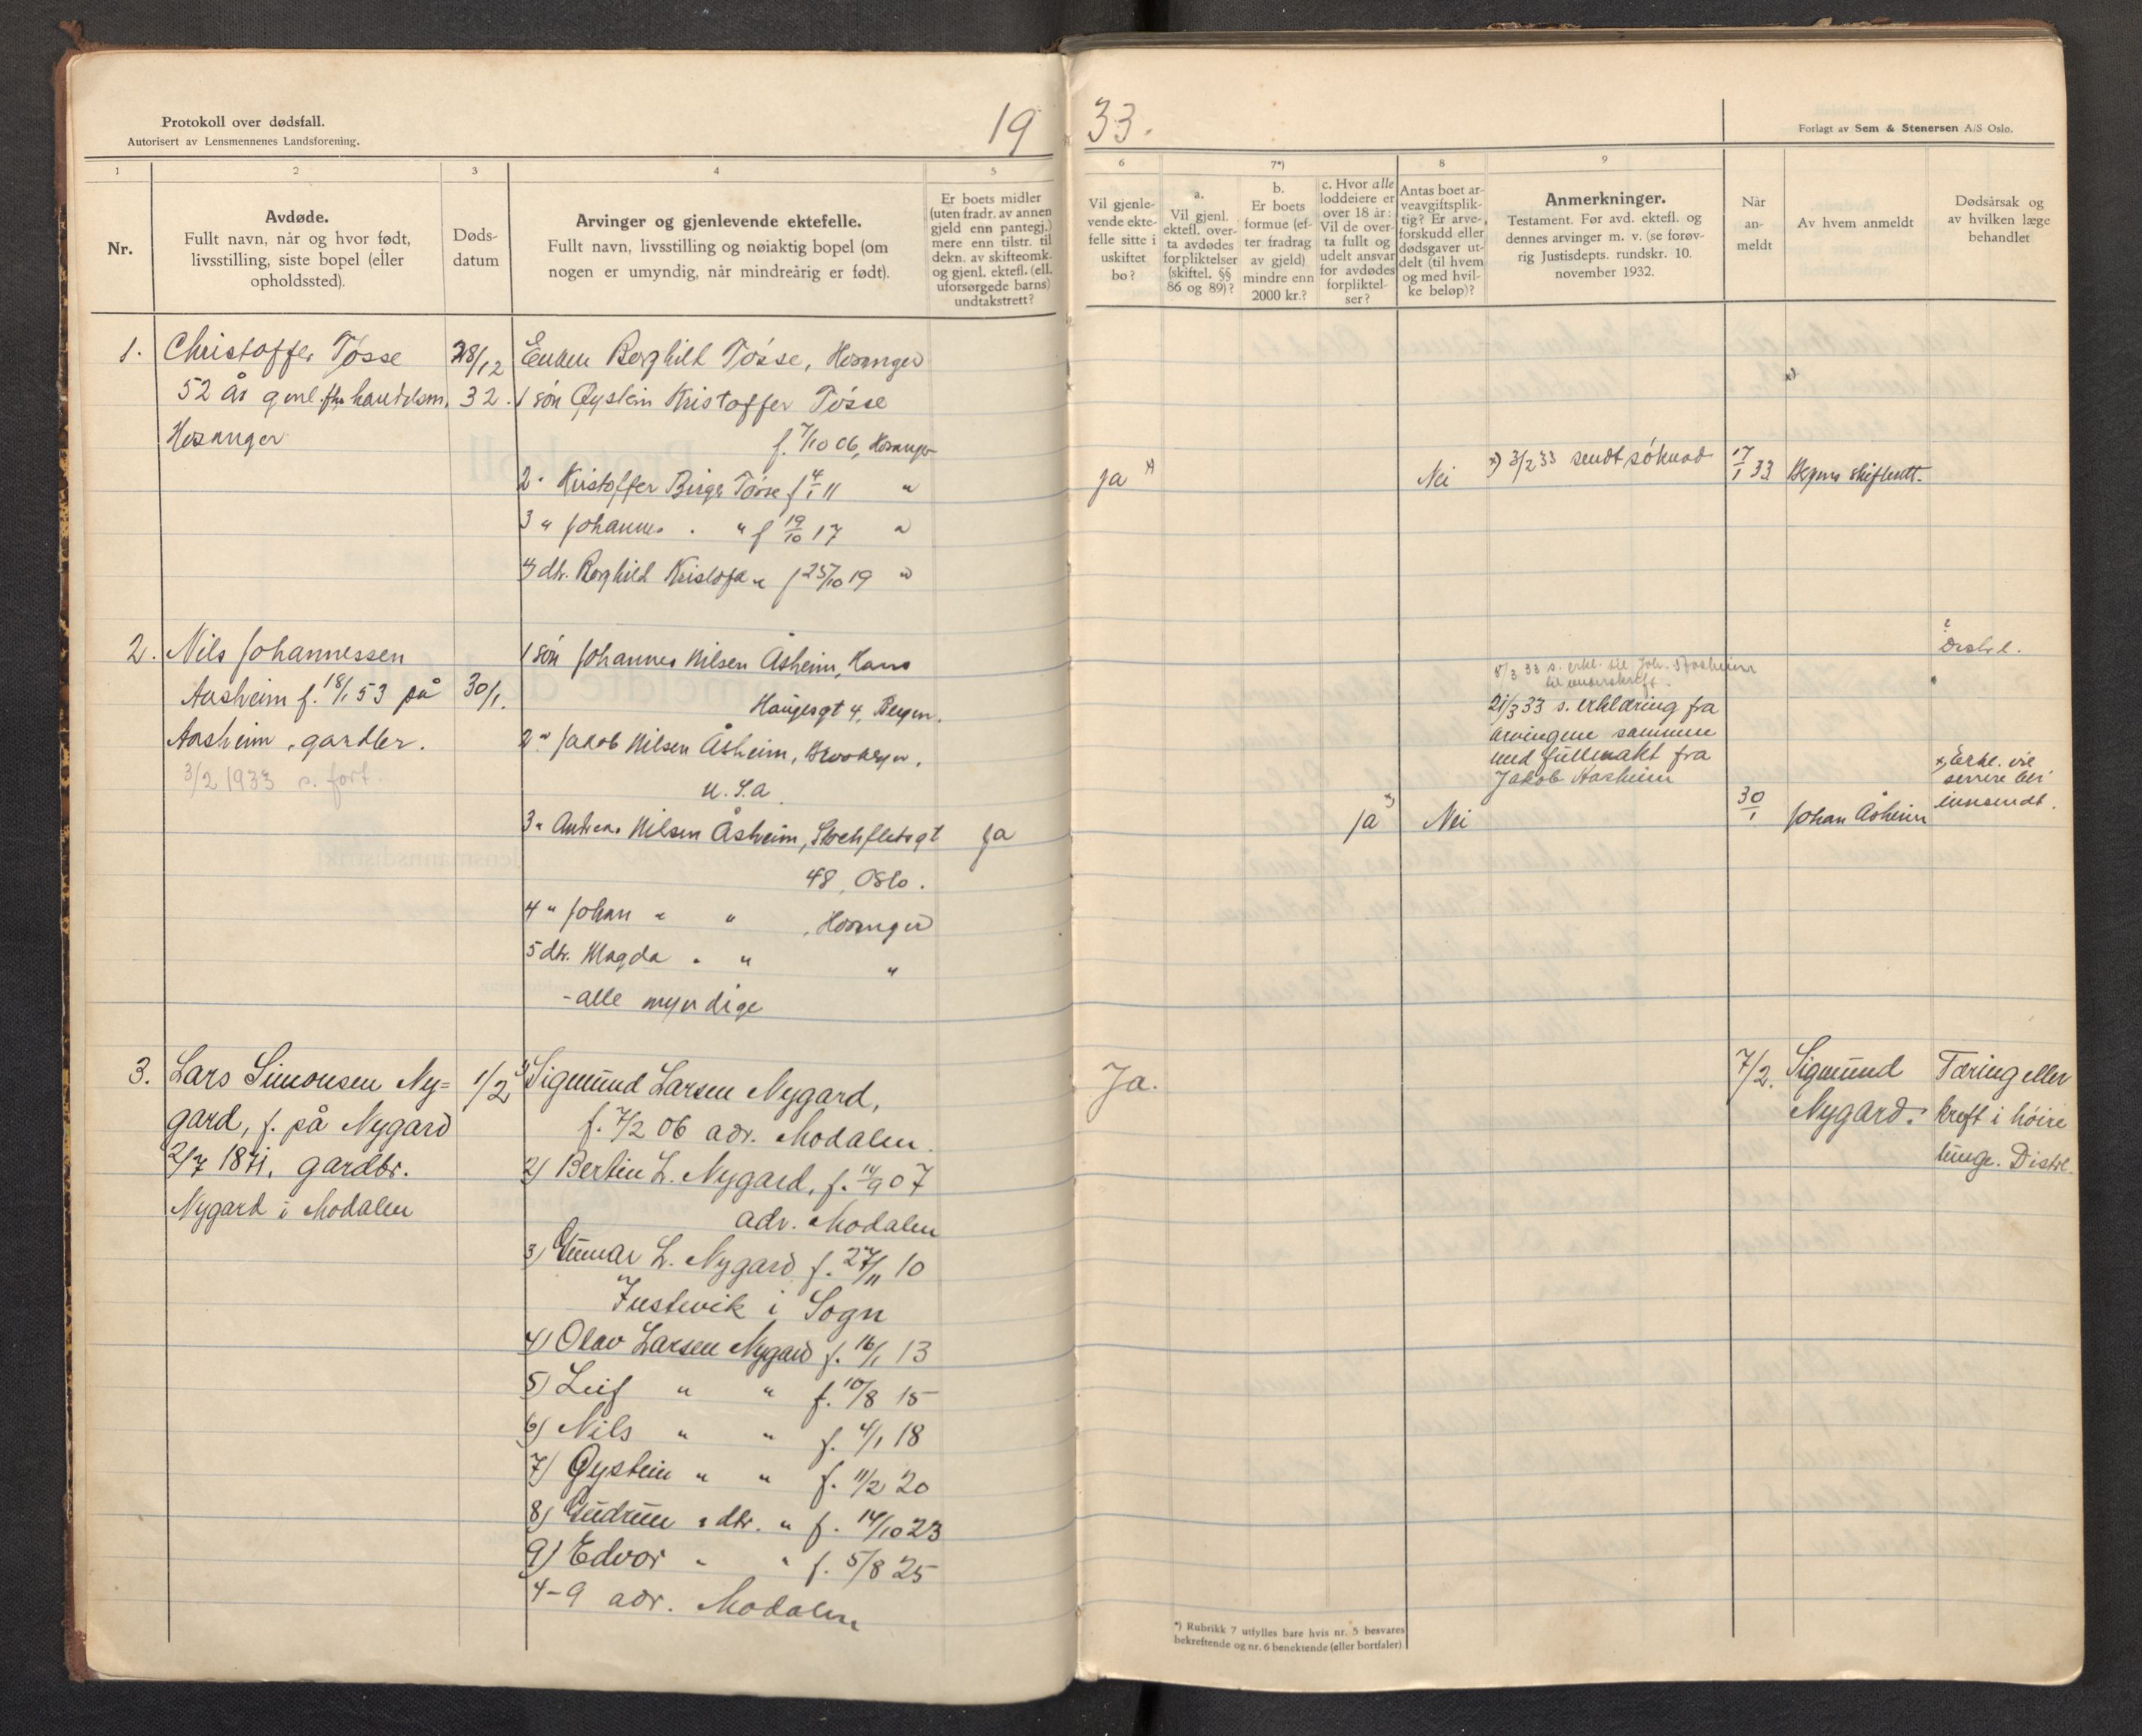 Protokoll over dødsfall.
Autorisert av Lensmennenes Landsforening.
19
1
2
3
4
5
Nr.
Avdøde.
Fullt navn, når og hvor født,
livsstilling, siste bopel (eller
opholdssted).
Døds-
datum
Arvinger og gjenlevende ektefelle.
Fullt navn, livsstilling og nøiaktig bopel (om
nogen er umyndig, når mindreårig er født).
Er boets midler
(uten fradr. av annen
gjeld enn pantegj.)
mere enn tilstr. til
dekn. av skifteomk.
og gjenl. ektefl. (ell.
uforsørgede barns)
undtakstrett?
1. Christoffer Tøsse 28/12 Enken Borghild Tøsse, Hosanger
52 år handelsm. 32. 1 søn Øystein Kristoffer Tøsse
Hosanger
f. 7/10 06, Hosanger
2 " Kristoffer Birger Tøsse f 4/1 11 "
3 " Johannes " " f 19/10 17 "
4 dtr. Borghild Kristofa " f 25/10 19 "
2. Nils Johannessen 1 søn Johannes Nilsen Åsheim, Hans
Aasheim f. 18/1 53 på 30/1. Haugesgt 4, Bergen.
Aasheim, gardbr. 2 " Jakob Nilsen Åsheim, Brooklyn,
3/2 1933 s. fort. U.S.a
3 " Andreas Nilsen Åsheim, Stockfletsgt Ja
48, Oslo.
4 " Johan " " , Hosanger
5 dtr. Magda " " "
- alle myndige
3. Lars Simonsen Ny= 1/2 1) Sigmund Larsen Nygard,
gard, f. på Nygard f. 7/2 06 adr. Modalen.
2/7 1871. gardbr. 2) Bertin L. Nygard, f. 14/9 07
Nygard i Modalen adr. Modalen
3) Gunnar L. Nygard f. 27/11 10
i Sogn
4) Olav Larsen Nygard f. 16/1 13
5) Leif " " f. 10/8 15
6) Nils " " f. 4/1 18
7) Øystein " " f. 11/2 20
8) Gudrun " dtr. " f. 14/10 23
9) Edvor " " f. 5/8 25
4-9 adr. Modalen
33.
Forlagt av Sem & Stenersen A/S Oslo.
6
7*)
8
9
Vil gjenle-
vende ekte-
felle sitte i
uskiftet
bo?
a.
Vil gjenl.
ektefl. over-
ta avdødes
forpliktelser
(skiftel. §§
86 og 89)?
b.
Er boets
formue (ef-
ter fradrag
av gjeld)
mindre enn
2000 kr.?
c. Hvor alle
loddeiere er
over 18 år:
Vil de over-
ta fullt og
udelt ansvar
for avdødes
forpliktel-
ser?
Antas boet ar-
veavgiftsplik-
tig? Er arve-
forskudd eller
dødsgaver ut-
delt (til hvem
og med hvil-
ke beløp)?
Anmerkninger.
Testament. Før avd. ektefl. og
dennes arvinger m. v. (se forøv-
rig Justisdepts. rundskr. 10.
november 1932.
Når
an-
meldt
Av hvem anmeldt
Dødsårsak og
av hvilken læge
behandlet
x)
ja x) Nei x) 3/2 33 sendt søknad 17/1 33 skifterett.
8/3 33 s. erkl. til Joh. Aasheim
til underskrift.
21/3 33 s. erklæring fra
arvingene sammen
med fullmakt fra
Jakob Aasheim
x) Erkl. vil
senere bli
innsendt.
Ja x) Nei 30/1 Johan Åsheim
Ja. 7/2. Sigmund Tæring eller
Nygard. kreft i høire
lunge. Distrl.
*) Rubrikk 7 utfylles bare hvis nr. 5 besvares
bekreftende og nr. 6 benektende (eller bortfaler)